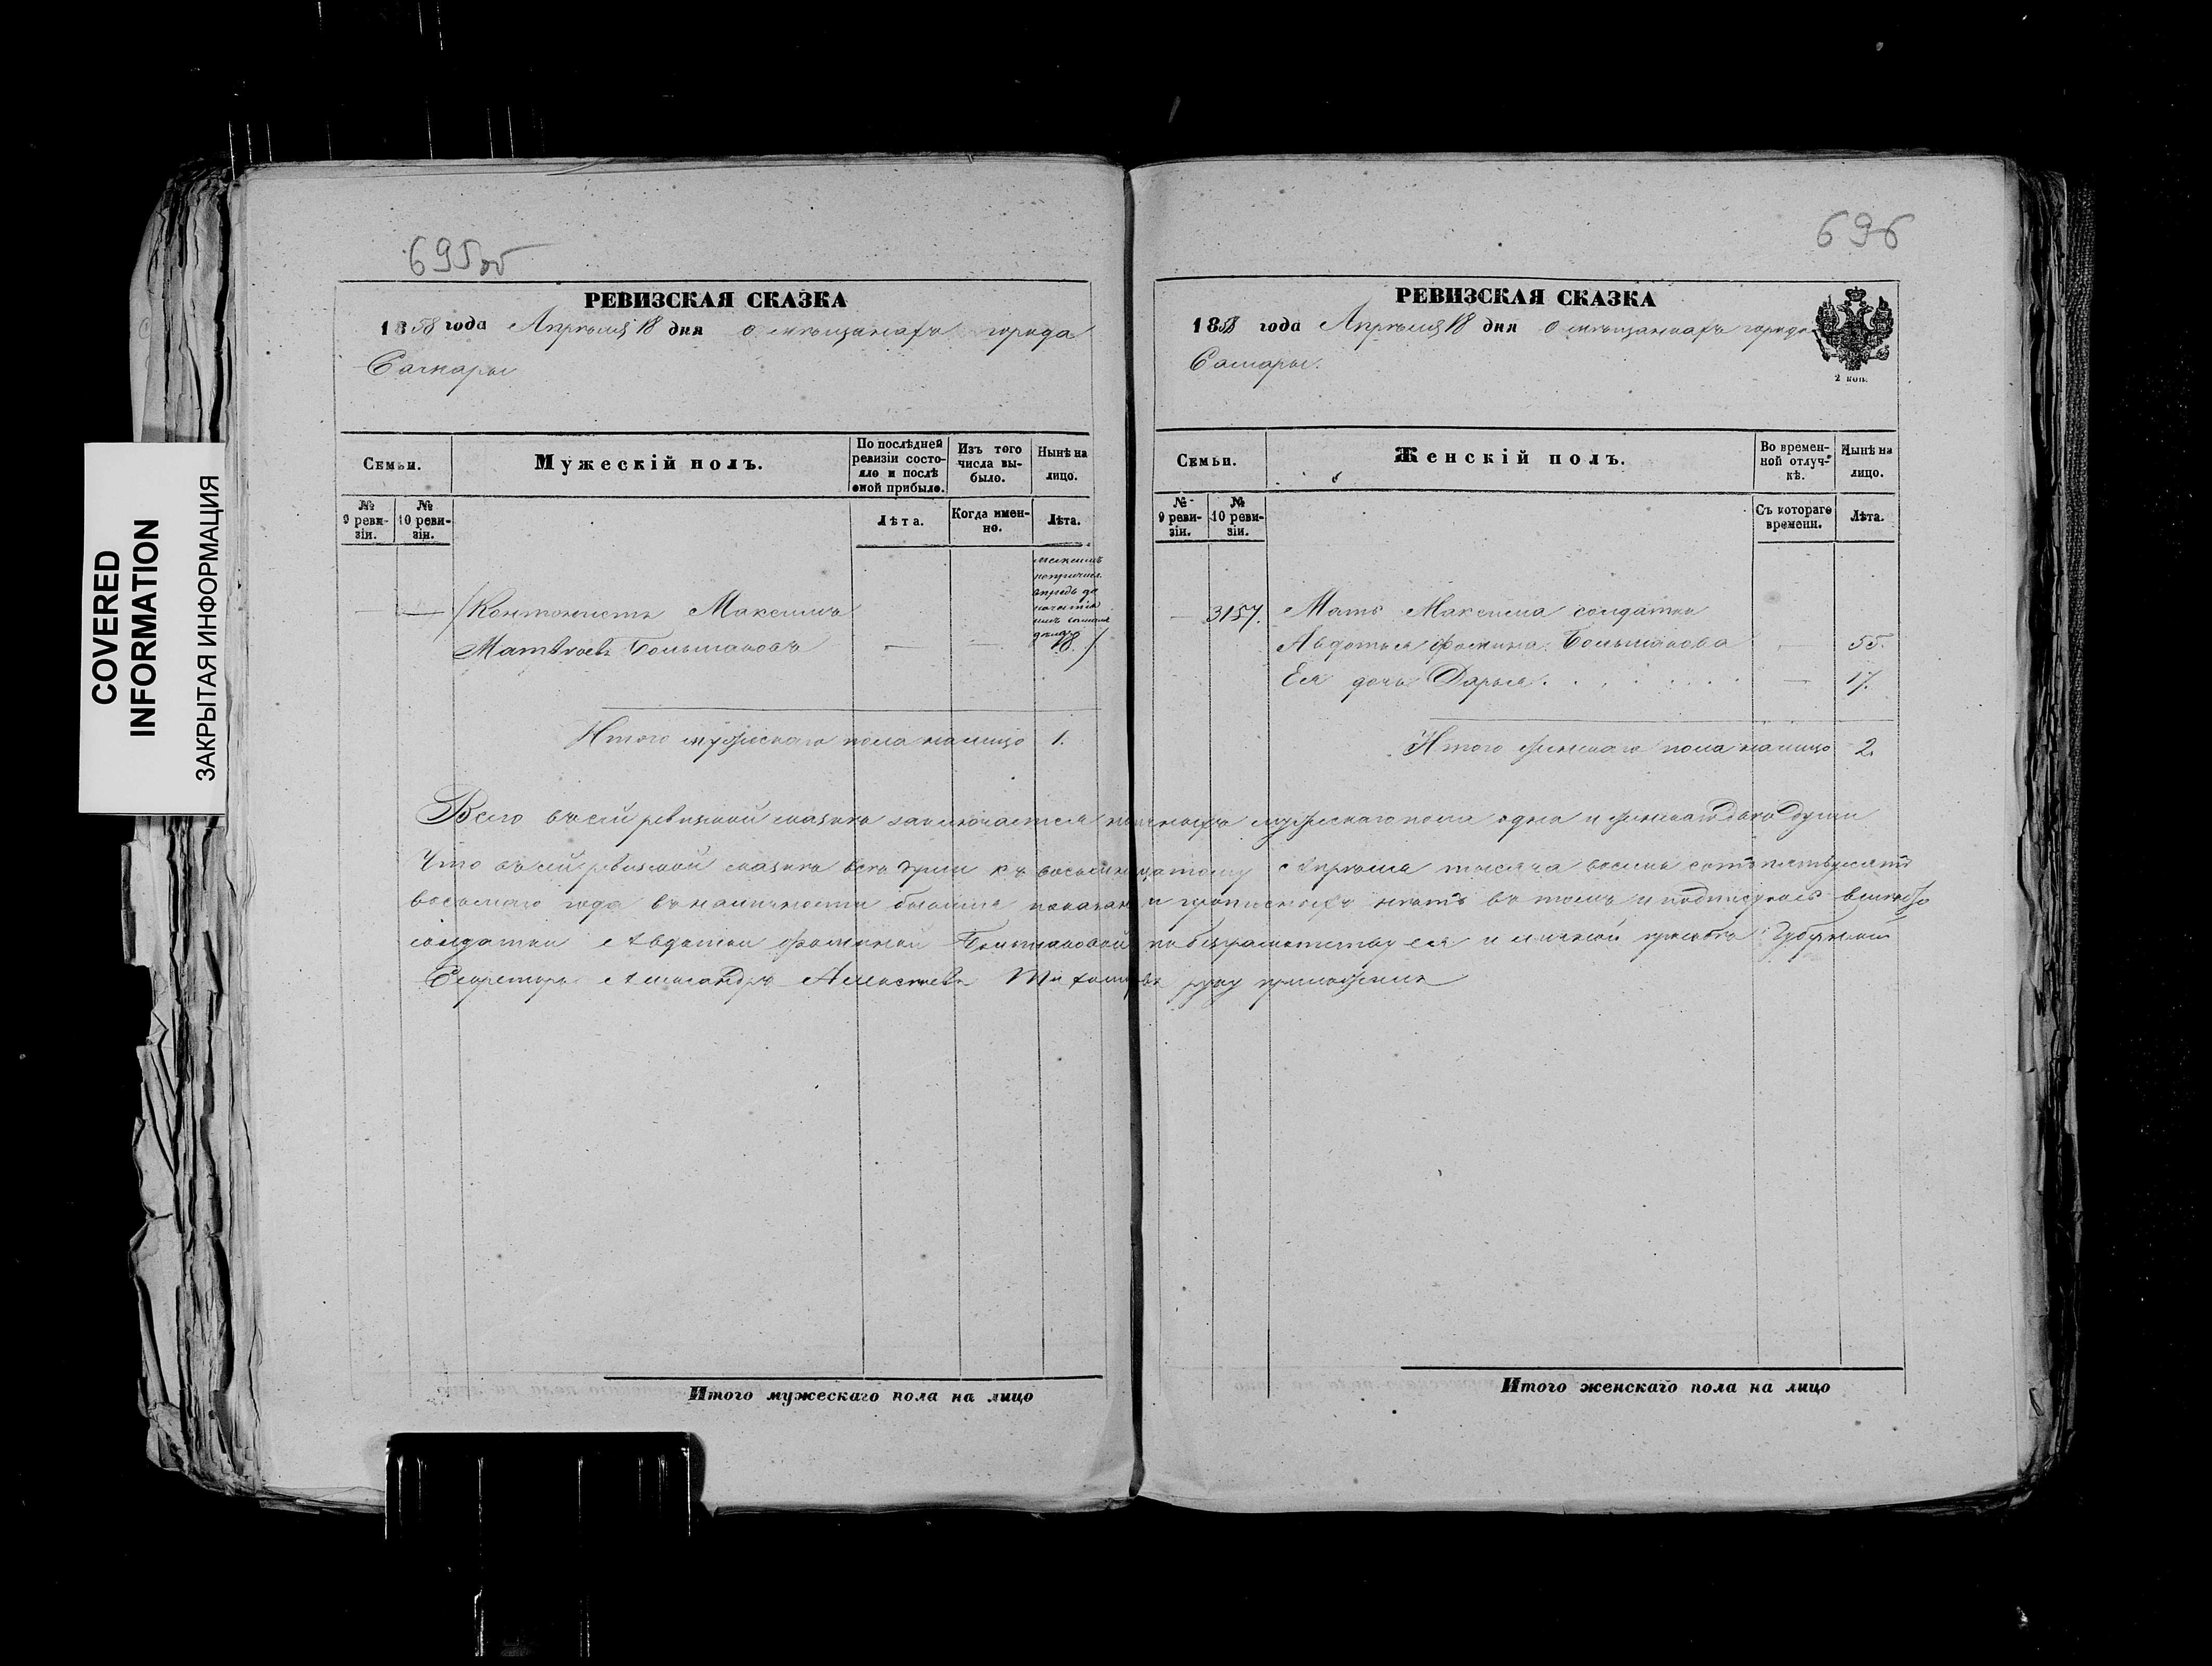 695об
РЕВИЗСКАЯ СКАЗКА
1858 года Апрѣля 18 дня о мѣщанахъ города
Самары
Семьи.
Мужескій полъ.
По послѣдней ревизіи состояло и послѣ оной прибыло.
Изъ того числа выбыло.
Нынѣ на лицо.
№ 9 ревизіи.
№ 10 ревизіи.
Лѣта.
Когда именно.
Лѣта.
— (Кантонистъ Максимъ
Матвѣевъ Большаковъ — — 18.)
Итого мужескаго пола налицо 1.
Итого мужескаго пола на лицо
696
РЕВИЗСКАЯ СКАЗКА
1858 года Апрѣля 18 дня о мѣщанахъ города
Самары.
2 коп.
Семьи.
Женскій полъ.
Во временной отлучкѣ.
Нынѣ на лицо.
№ 9 ревизіи.
№ 10 ревизіи.
Съ котораго времени.
Лѣта.
— 3157. Мать Максима солдатка
Авдотья Фомина Большакова — 55.
Ея дочь Дарья. — 17.
Итого женскаго пола налицо 2.
Всего въ сей ревизской сказкѣ заключается наличныхъ мужескаго пола одна и женскаго двѣ души
Что въ сей ревизской сказкѣ всѣ души къ восемнадцатому Апрѣля тысяча восемь сотъ пятьдесятъ
восьмаго года въ наличности бывшія показаны и прописныхъ нѣтъ въ томъ и подписуюсь вместо
солдатки Авдотьи Фоминой Большаковой по безграмотству ея и личной просьбѣ Губернскій
Секретарь Александръ Алексѣевъ Тихомировъ руку приложилъ
Итого женскаго пола на лицо
COVERED INFORMATION
ЗАКРЫТАЯ ИНФОРМАЦИЯ